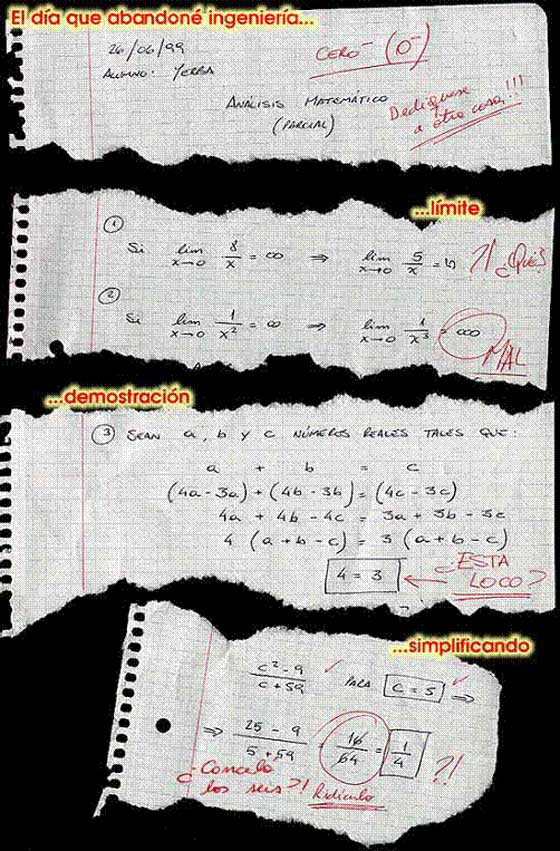 El día que abandoné ingeniería...
26/06/99
CERO⁻ (0⁻)
ALUMNO: YERBA
ANÁLISIS MATEMÁTICO
(PARCIAL)
Dedíquese
a otra cosa!!!
...límite
①
Si lim x→0 8/x = ∞ ⇒ lim x→0 5/x = 5 ?! ¿Qué?
②
Si lim x→0 1/x² = ∞ ⇒ lim x→0 1/x³ = ∞∞
MAL
...demostración
③ SEAN a, b y c NÚMEROS REALES TALES QUE:
a + b = c
(4a-3a)+(4b-3b)=(4c-3c)
4a + 4b - 4c = 3a + 3b - 3c
4 (a+b-c) = 3 (a+b-c)
4 = 3
¿ESTA
LOCO?
...simplificando
c²-9 / c+59 PARA c=5 ⇒
⇒ 25-9 / 5+59 = 16/64 = 1/4 ?!
¿Cancela
los seis?! Ridículo